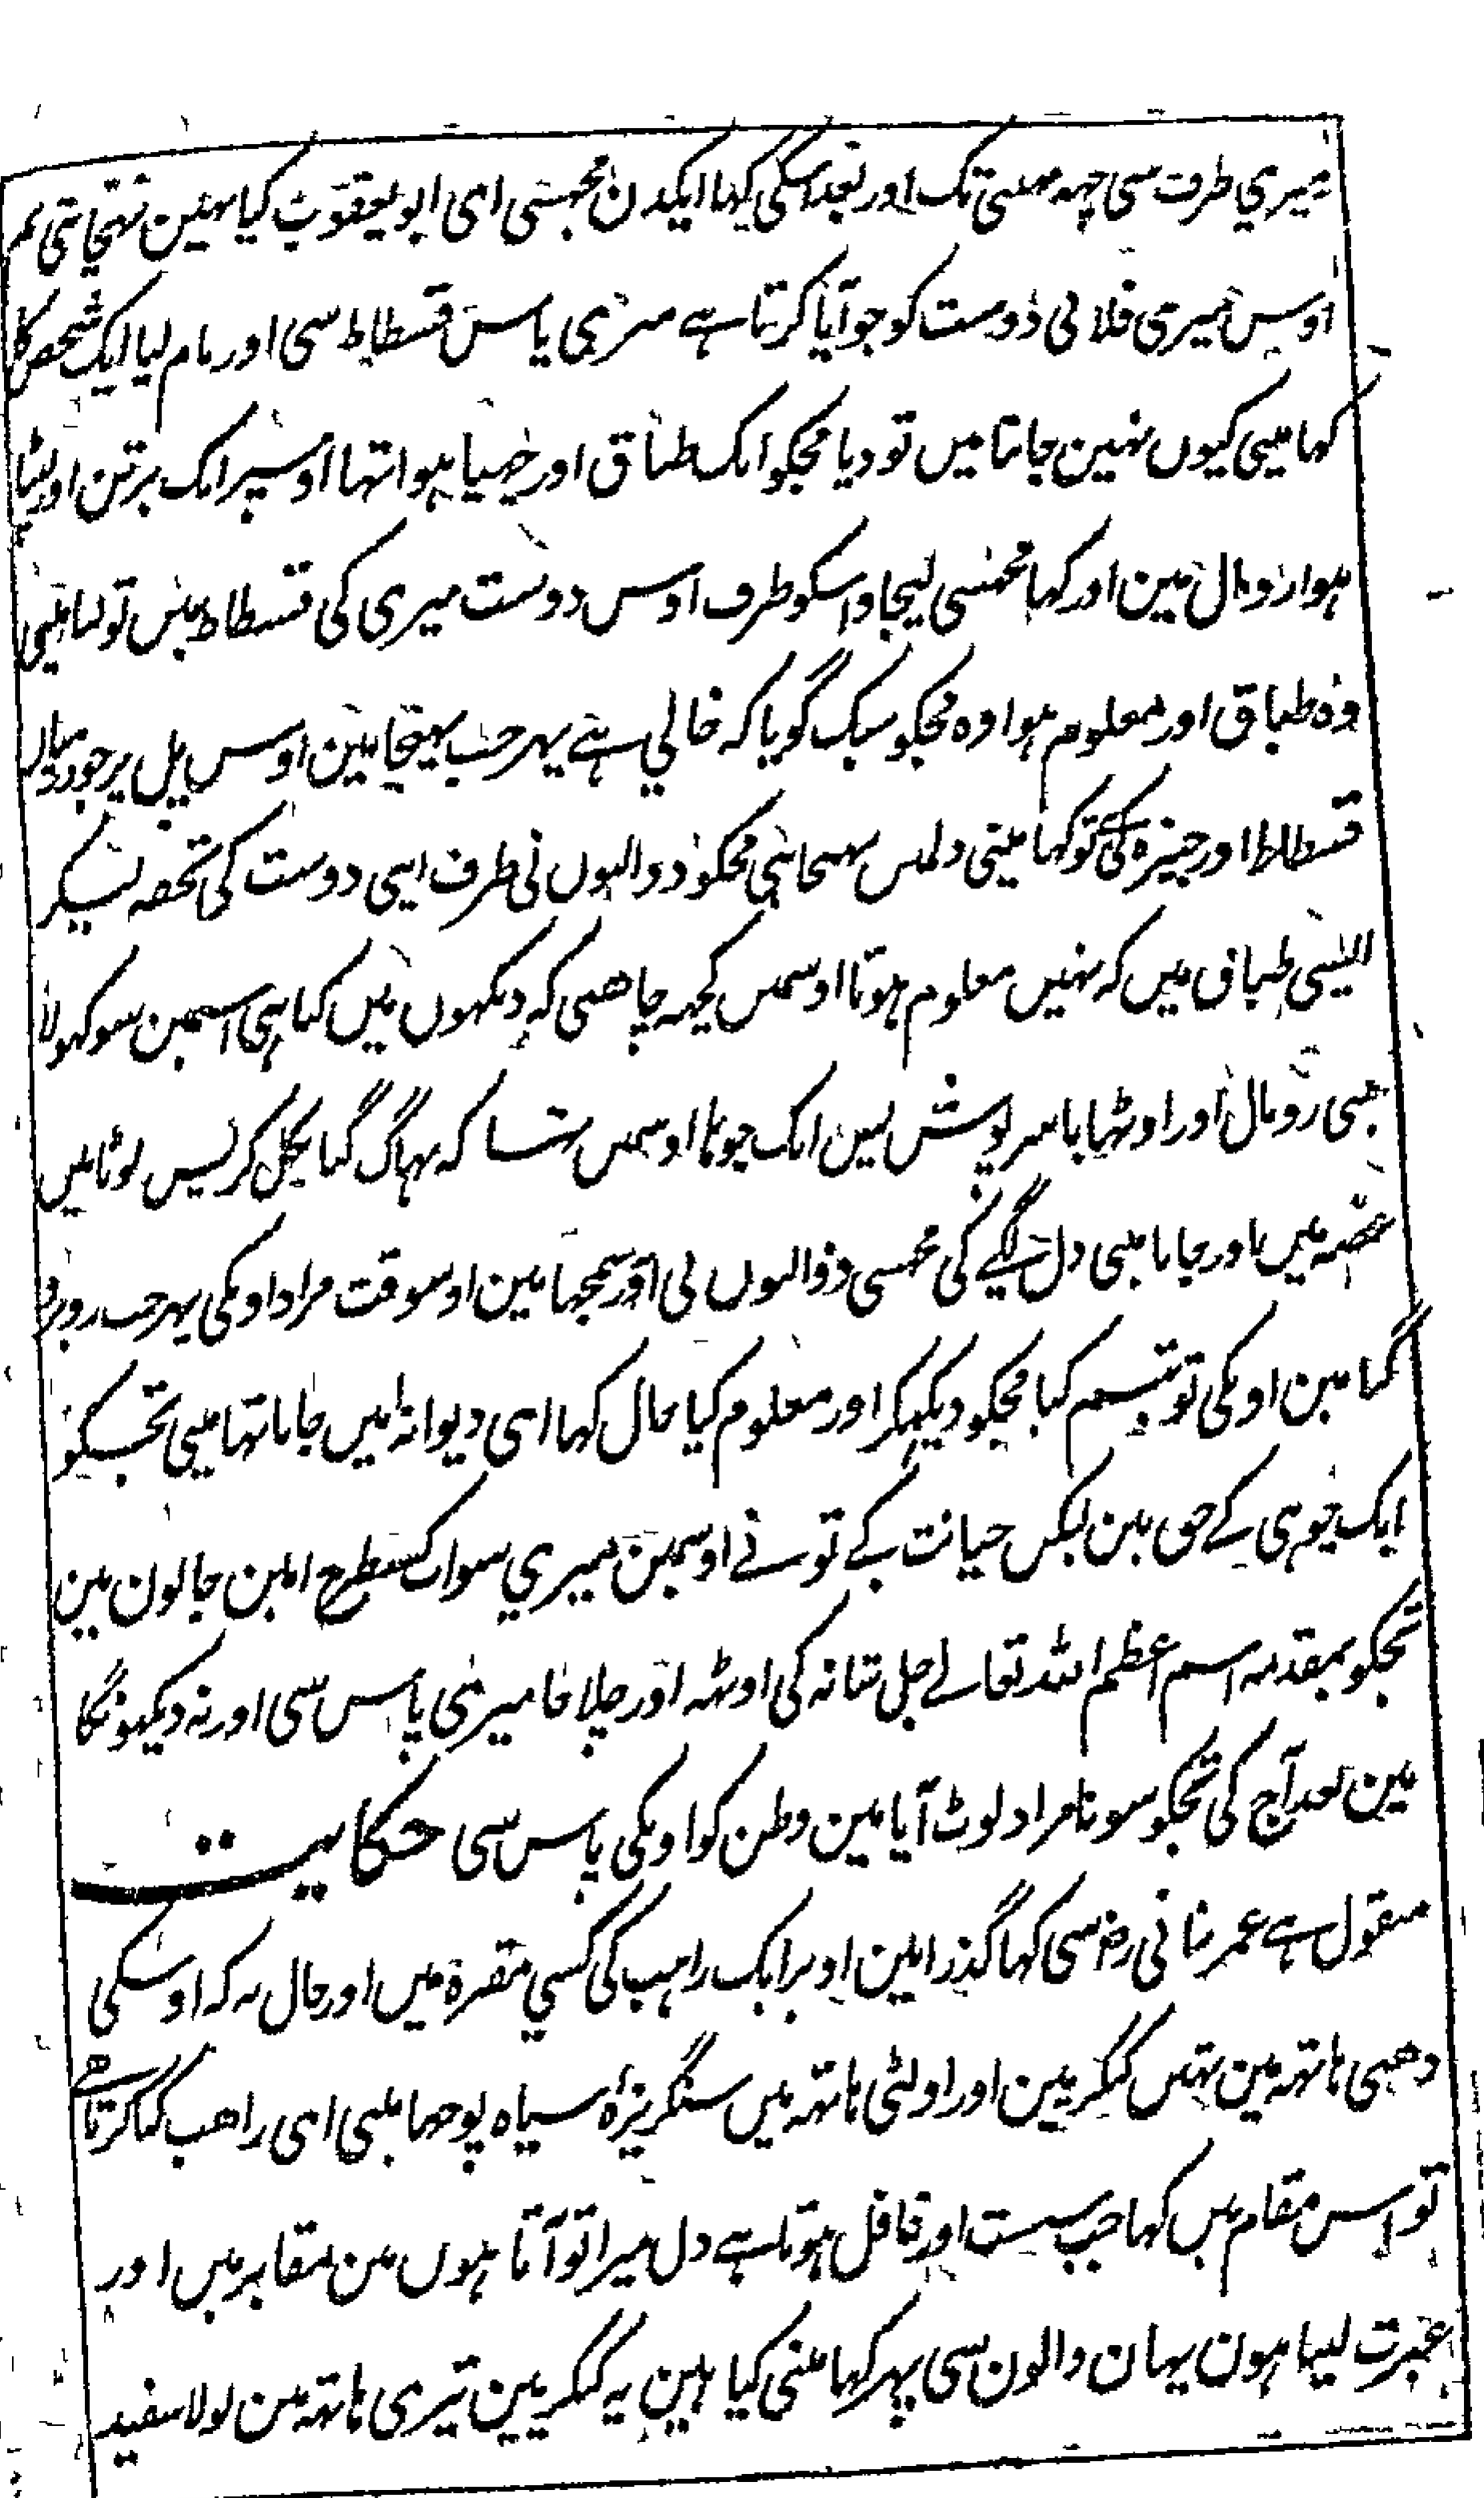 میری طرف سی چہہ مہینی تک اور بعد اسکی کہا ایکدن مجہسی ای ابو یعقوب کیا نہین پہچانتی تم
اوس میری فلانی دوست کو جو آیا کرتا ہے میری پاس فسطاط سی اور نام لیا ایک شخص کا
کہا مینی کیوں نہین جانتا میں تو دیا مجکو ایک طباق اور چہپا ہوا تہا اوسپر ایک برتن اور لپٹا
ہوا رومال مین اور کہا مجہسی لیجاو اسکو طرف اوس دوست میری کی فسطاط میں تو لیا مینی
وہ طباق اور معلوم ہوا وہ مجکو سبک گویا کہ خالی ہے پہر جب پہنچا مین اوس پل پر جو درمیان
فسطاط اور جیزہ کی تو کہا مینی دلمیں بہیجا ہی مجکو ذوالنون نی طرف اپنی دوست کی تحفہ لیکر
ایسی طباق میں کہ نہیں معلوم ہوتا اوسمیں کچہہ چاہئی کہ دیکہوں میں کیا ہی اسمین سو کہولا
مینی رومال اور اوٹہایا سرپوش پس ایک چوہا اوسمیں تہا کہ بہاگ گیا نکل کر پس لوٹا میں
غصہ میں اور جانا مینی دل لگی کی مجہسی ذوالنون نی اور نہ سمجہا مین اوسوقت مراد اونکی پہر جب روبرو
گیا مین اونکی تو تبسم کیا مجکو دیکہکر اور معلوم کیا حال کہا ای دیوانہ امین جانا تہا مینی تجہکو
ایک چوہی کے حق مین لیکن خیانت کے تو نے اوسمین میری سو اب کسطرح امین جانون مین
تجکو بمقدمہ اسم اعظم اللہ تعالے جل شانہ کی اوٹہہ اور چلا جا میری پاس سی اور نہ دیکہونگا
مین بعد آج کی تجکو سو نامراد لوٹ آیا مین وطن کو اونکی پاس سی حکایت
منقول ہے عمر ثانی رض سی کہا گذرا مین اوپر ایک راہب کی کسی مقبرہ میں اور حال یہ کہ اوسکی
دہنی ہاتہہ مین تہیں کنکریین اور اولٹی ہاتہہ میں سنگریزہ سیاہ پوچہا مینی ای راہب کیا کرتا ہے
تو اس مقام میں کہا جب سست اور غافل ہوتا ہے دل میرا تو آتا ہوں مین مقابر میں اور
عبرت لیتا ہون یہان والون سی پہر کہا مینی کیا ہین یہ کنکریین تیری ہاتہہ مین بولا سفید